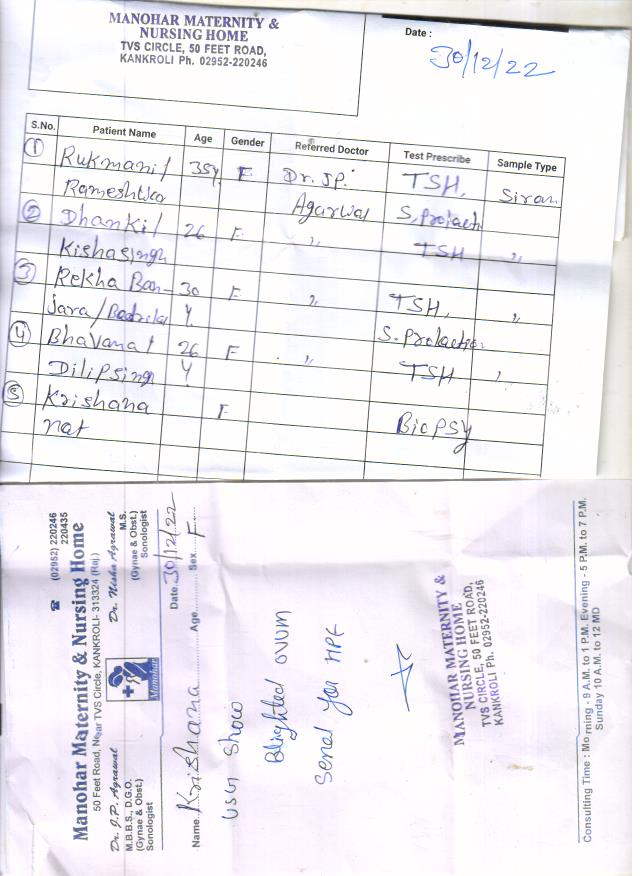 MANOHAR MATERNITY &
NURSING HOME
TVS CIRCLE, 50 FEET ROAD,
KANKROLI Ph. 02952-220246
Date :
30/12/22
S.No. Patient Name Age Gender Referred Doctor Test Prescribe Sample Type
① Rukmani/ 35y. F Dr. J.P. TSH,
Rameshwa Agarwal S. Prolactin
② Dhanki/ 26 F " TSH "
Kishasingh
③ Rekha Ban 30 F " TSH, "
Jara/ Y. S. Prolaction
④ Bhavana/ 26 F " TSH
Dilipsing Y
⑤ Krishana F Biopsy
nat
☎ (02952) 220246
220435
Manohar Maternity & Nursing Home
50 Feet Road, Near TVS Circle, KANKROLI- 313324 (Raj.)
Dr. J.P. Agrawal
M.B.B.S., D.G.O.
(Gynae & Obst.)
Sonologist
Manohar
Dr. Nisha Agrawal
M.S.
(Gynae & Obst.)
Sonologist
Date 30/12/22
Name Krishana Age Sex F
USG Show
Blighted OVUM
Send for HPE
MANOHAR MATERNITY &
NURSING HOME
TVS CIRCLE, 50 FEET ROAD,
KANKROLI Ph. 02952-220246
Consulting Time : Morning - 9 A.M. to 1 P.M. Evening - 5 P.M. to 7 P.M.
Sunday 10 A.M. to 12 MD